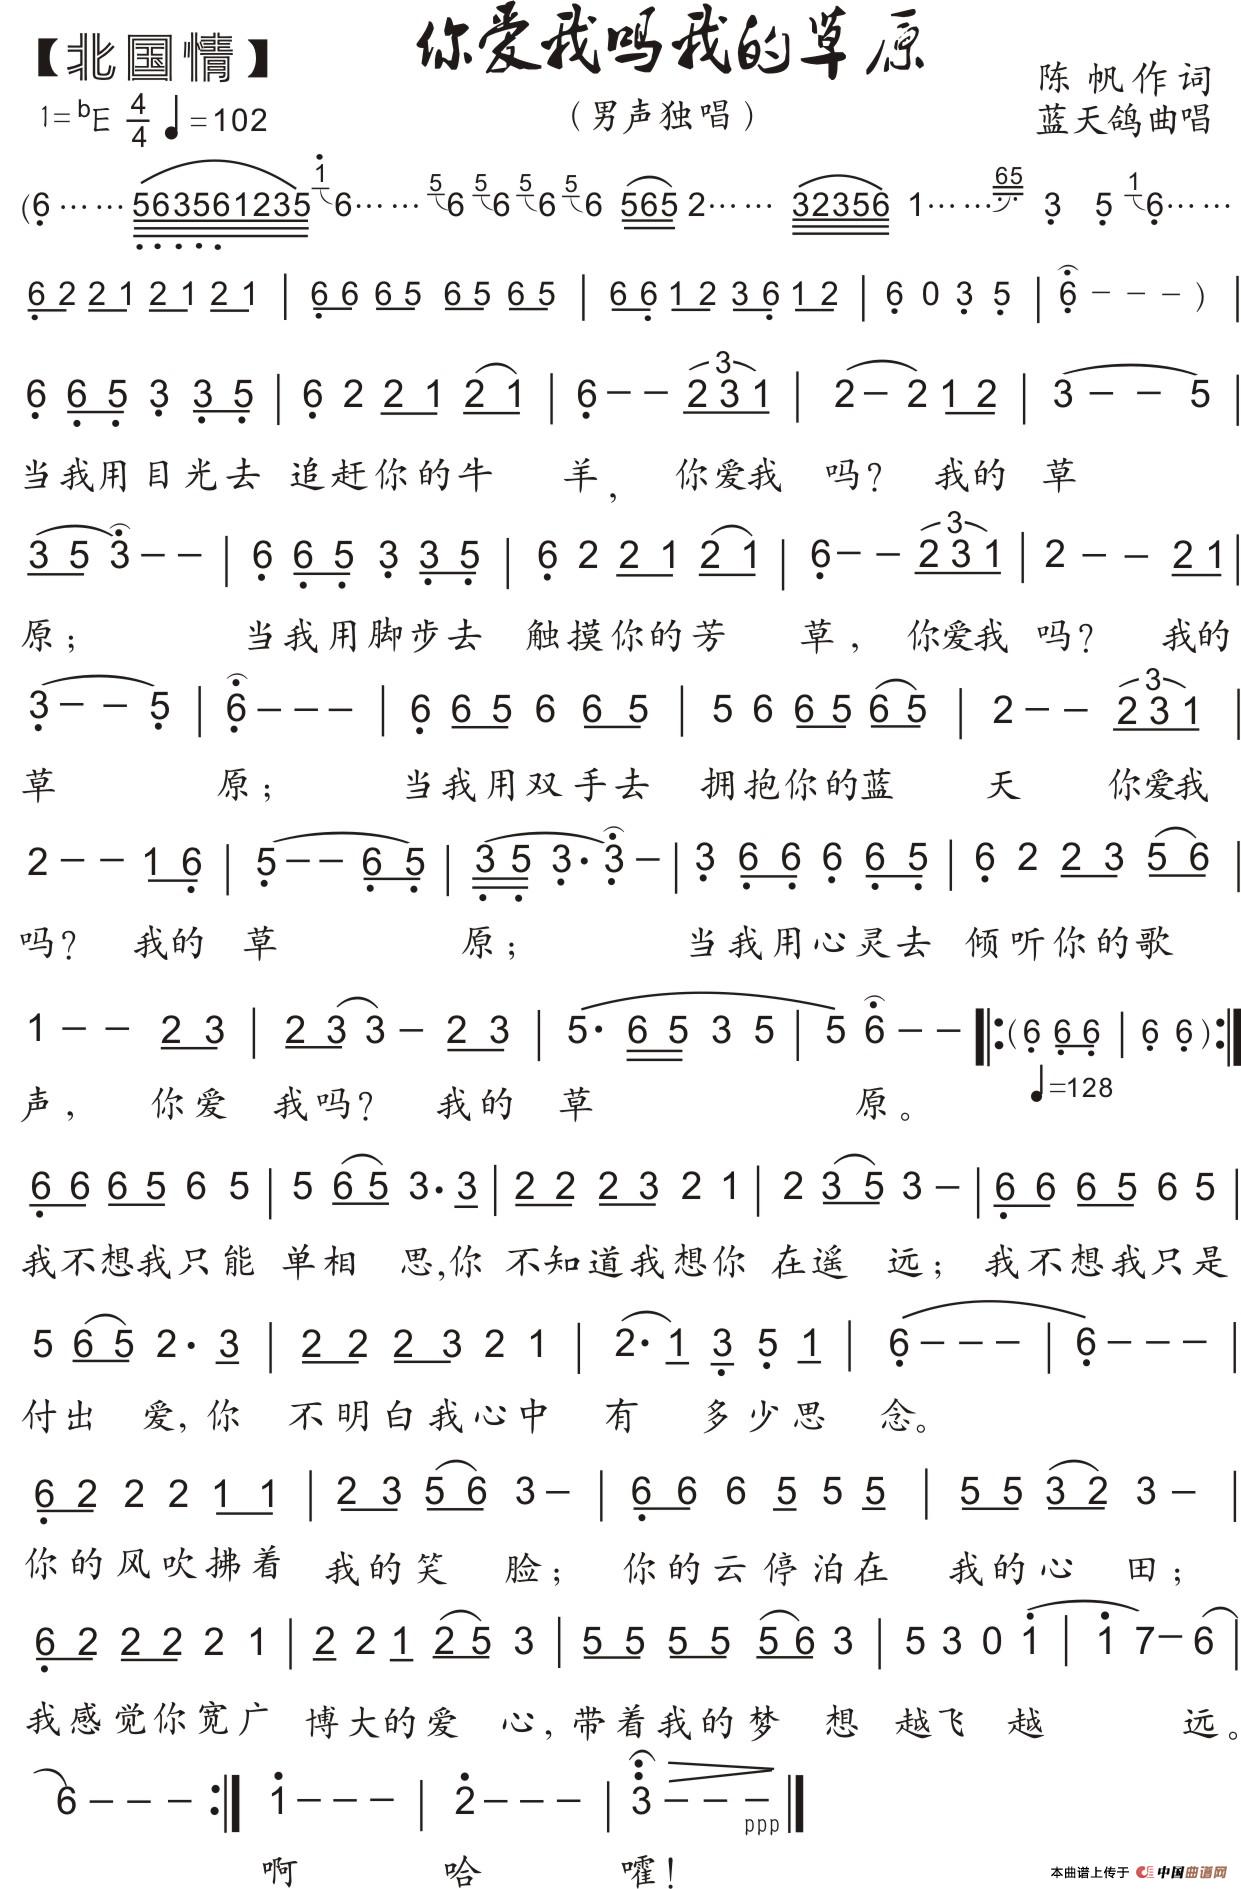 【北国情】
你爱我吗我的草原
陈帆作词
1=ᵇE 4/4 ♩=102
（男声独唱）
蓝天鸽曲唱
(6······ 563561235 1 6······ 5 6 5 6 5 6 5 6 565 2······ 32356 1······ 65 3 5 1 6······
6 2 2 1 2 1 2 1 | 6 6 6 5 6 5 6 5 | 6 6 1 2 3 6 1 2 | 6 0 3 5 | 6 - - - ) |
6 6 5 3 3 5 | 6 2 2 1 2 1 | 6 - - 3 2 3 1 | 2 - 2 1 2 | 3 - - 5 |
当我用目光去 追赶你的牛 羊，你爱我 吗？ 我的 草
3 5 3 - - | 6 6 5 3 3 5 | 6 2 2 1 2 1 | 6 - - 3 2 3 1 | 2 - - 2 1 |
原； 当我用脚步去 触摸你的芳 草，你爱我 吗？ 我的
3 - - 5 | 6 - - - | 6 6 5 6 6 5 | 5 6 6 5 6 5 | 2 - - 3 2 3 1 |
草 原； 当我用双手去 拥抱你的蓝 天 你爱我
2 - - 1 6 | 5 - - 6 5 | 3 5 3 · 3 - | 3 6 6 6 6 5 | 6 2 2 3 5 6 |
吗？ 我的 草 原； 当我用心灵去 倾听你的歌
1 - - 2 3 | 2 3 3 - 2 3 | 5 · 6 5 3 5 | 5 6 - - ‖: (6 6 6 | 6 6) :‖
♩=128
声， 你爱 我吗？ 我的 草 原。
6 6 6 5 6 5 | 5 6 5 3 · 3 | 2 2 2 3 2 1 | 2 3 5 3 - | 6 6 6 5 6 5 |
我不想我只能 单相 思,你 不知道我想你 在遥 远； 我不想我只是
5 6 5 2 · 3 | 2 2 2 3 2 1 | 2 · 1 3 5 1 | 6 - - - | 6 - - - |
付出 爱,你 不明白我心中 有 多少思 念。
6 2 2 2 1 1 | 2 3 5 6 3 - | 6 6 6 5 5 5 | 5 5 3 2 3 - |
你的风吹拂着 我的笑 脸； 你的云停泊在 我的心 田；
6 2 2 2 2 1 | 2 2 1 2 5 3 | 5 5 5 5 5 6 3 | 5 3 0 1 | 1 7 - 6 |
我感觉你宽广 博大的爱 心,带着我的梦 想 越飞 越 远。
6 - - - :‖ 1 - - - | 2 - - - | 3 - - - ‖
ppp
啊 哈 嚯！
本曲谱上传于 中国曲谱网